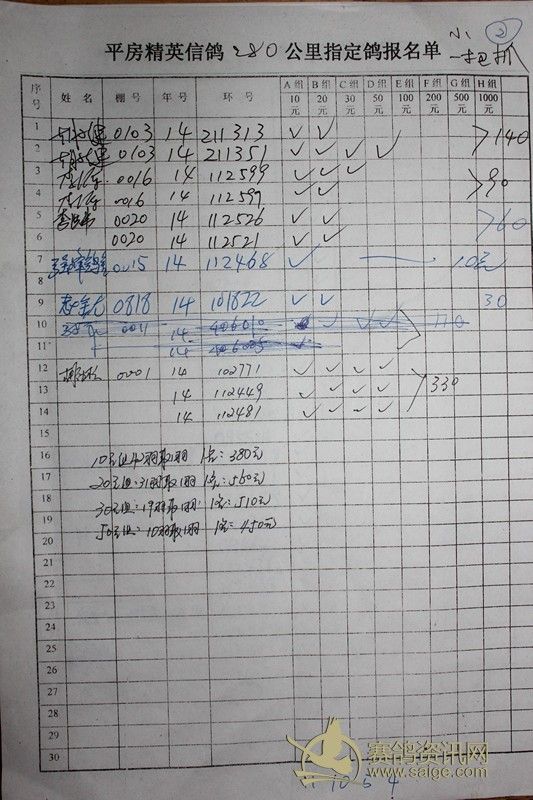 小 ②
平房精英信鸽 280 公里指定鸽报名单
序号 姓名 棚号 年号 环号 A组10元 B组20元 C组30元 D组50元 E组100元 F组200元 G组500元 H组1000元
1 0103 14 211313 ✓ ✓ >140
2 0103 14 211351 ✓ ✓ ✓ ✓
3 0016 14 112599 ✓ ✓ ✓
4 0016 14 112597 ✓ ✓ >90
5 0020 14 112526 ✓ ✓ >60
6 0020 14 112521 ✓ ✓
7 0015 14 112468 ✓ 10元
8
9 0818 14 101822 ✓ ✓ 30
10 0011 14 ✓ ✓ ✓ 110
11 14 ✓
12 0001 14 102771 ✓ ✓ ✓ ✓
13 14 112449 ✓ ✓ ✓ ✓ 330
14 14 112481 ✓ ✓ ✓ ✓
15
16 10元组 取1羽 1名:380元
17 20元组:31羽取1羽 1名:560元
18 30元组:19羽取1羽 1名:510元
19 50元组:10羽取1羽 1名:450元
20
21
22
23
24
25
26
27
28
29
30
赛鸽资讯网
www.saige.com